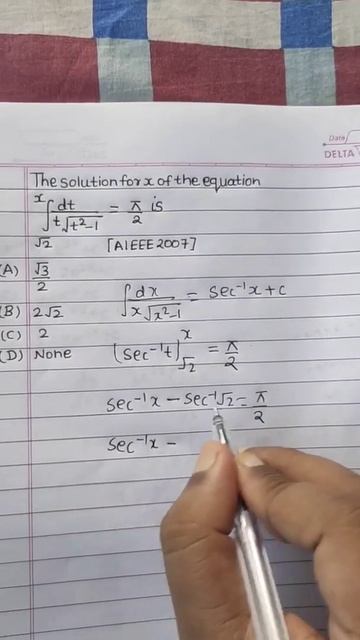 Date
DELTA
The solution for x of the equation
x∫√2 dt/(t√(t²-1)) = π/2 is
[AIEEE 2007]
(A) √3/2
(B) 2√2
(C) 2
(D) None
∫dx/(x√(x²-1)) = sec⁻¹x + c
(sec⁻¹t)x√2 = π/2
sec⁻¹x - sec⁻¹√2 = π/2
sec⁻¹x -